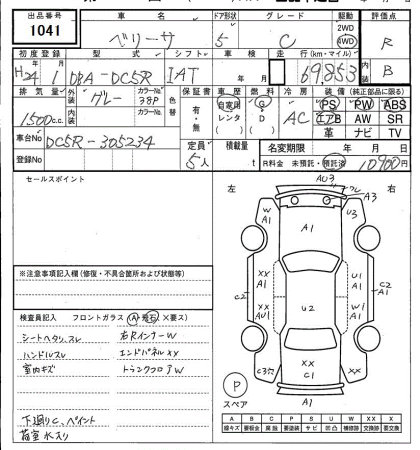 出品番号 車名 ドア形状 グレード 駆動 評価点
1041 ベリーサ 5 C 2WD 4WD R
初度登録 型式 シフト 車検 走行(km・マイル) 内装
H24 1 DBA-DC5R IAT 年 月 69853 B
排気量 外装 グレー カラーNo. 38P 色替 保証書 車歴 燃料 冷房 装備(純正部品に限る)
1500c.c. 内装 カラーNo. 有・無 自家用 レンタ ( ) G・D ( ) AC PS PW ABS
エアB AW SR
革 ナビ TV
車台No. DC5R-305234 定員 積載量 名変期限 年 月 日
登録No. 5人 t R料金 未預託・預託済 10900円
セールスポイント
左 右
AU3
A3
W A1
U3
A1
XX A1
U1 A1
C2
XX AU1
U2
W A1
C2
XX C1
C3穴
XX A1
A1
※注意事項記入欄(修復・不具合箇所および状態等)
検査員記入 フロントガラス (A・飛石 X要ス)
シートヘタリ、スレ 右RインナーW
ハンドルスレ エンドパネルXX
室内キズ トランクフロアW
下廻りC、ペイント
荷室水入り
P
スペア
A B C P S U W X XX
線キズ 要板金 腐蝕 要塗装 サビ 凹凸 補修跡 要交換 交換跡